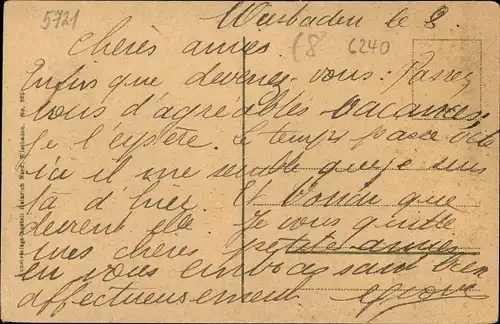 5721
Wiesbaden le 8.
(8
6240
Chères amies.
Enfin que devenez-vous. Passez
vous d'agréables vacances
je l'espère. le temps passe vite
ici il me semble que je suis
là d'hier. Et Vonin que
devient elle. Je vous quitte
mes chères petites amies
en vous embrassant bien
affectueusement.
Heinrich Nord, Wiesbaden. No.